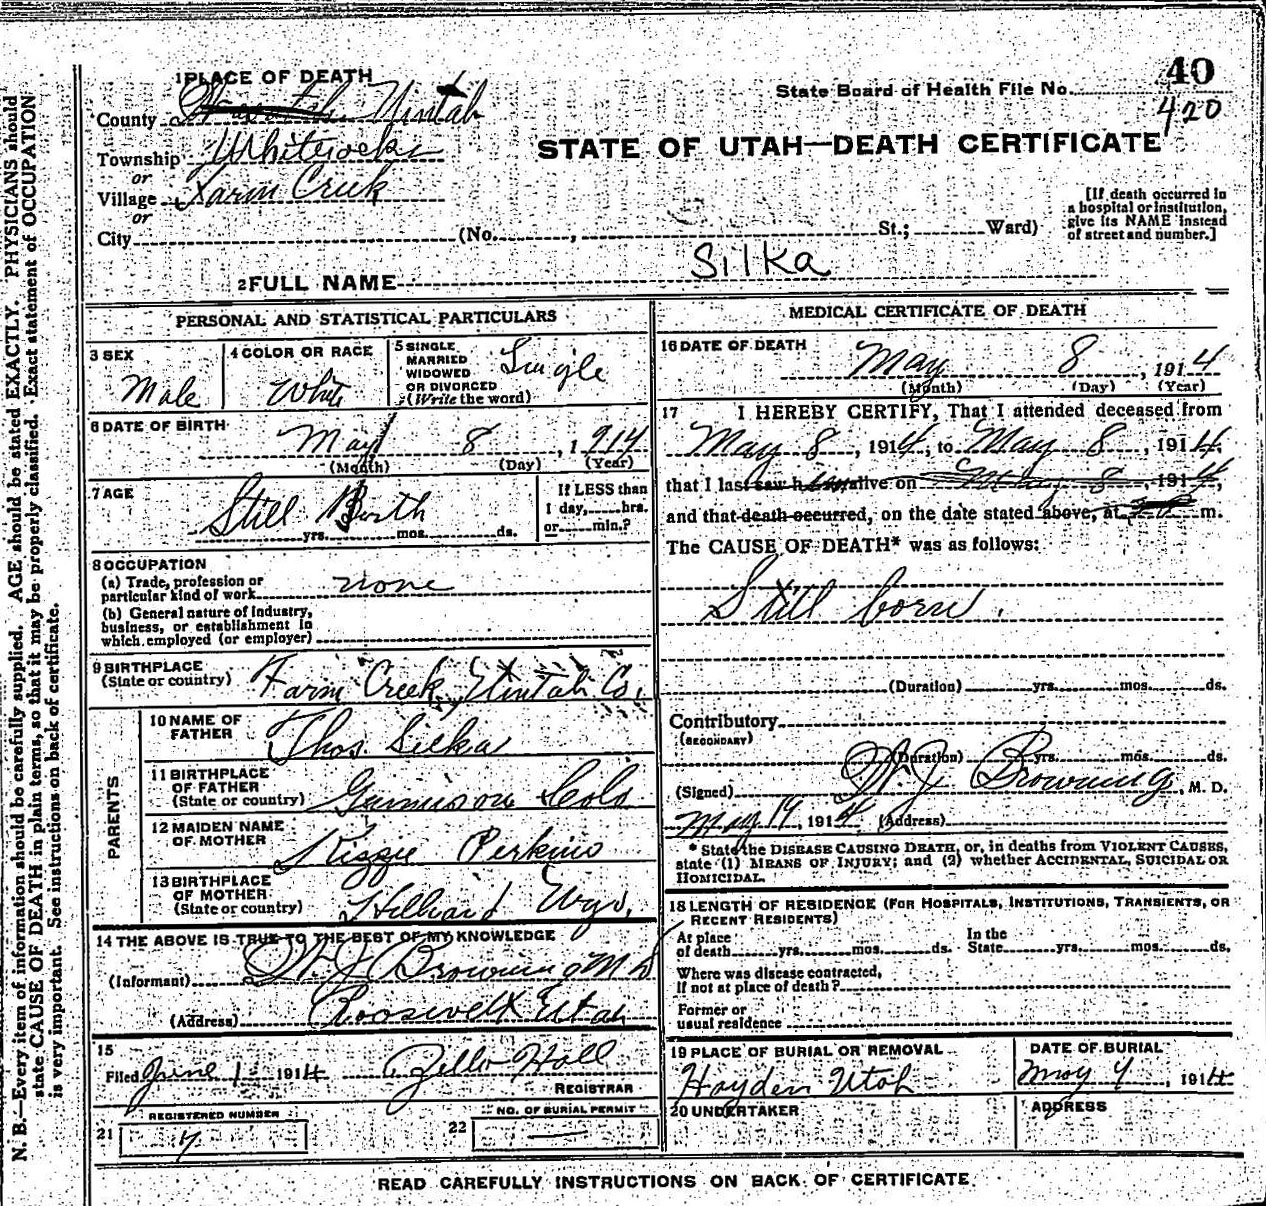 40
State Board of Health File No.
420
1 PLACE OF DEATH
County Wasatch Uintah
STATE OF UTAH—DEATH CERTIFICATE
Township Whiterocks
or
Village Farm Creek
or
City (No. , St.; Ward)
[If death occurred in
a hospital or institution,
give its NAME instead
of street and number.]
2 FULL NAME Silka
PERSONAL AND STATISTICAL PARTICULARS
3 SEX
Male
4 COLOR OR RACE
White
5 SINGLE
MARRIED
WIDOWED
OR DIVORCED
(Write the word)
Single
6 DATE OF BIRTH
May 8, 1914
(Month) (Day) (Year)
7 AGE
Still Birth
yrs. mos. ds.
If LESS than
1 day, hrs.
or min.?
8 OCCUPATION
(a) Trade, profession or
particular kind of work none
(b) General nature of industry,
business, or establishment in
which employed (or employer)
9 BIRTHPLACE
(State or country) Farm Creek, Uintah Co.
PARENTS
10 NAME OF
FATHER Thos. Silka
11 BIRTHPLACE
OF FATHER
(State or country) Gunnison Colo
12 MAIDEN NAME
OF MOTHER Kizzie Perkins
13 BIRTHPLACE
OF MOTHER
(State or country) Hilliard Wyo.
14 THE ABOVE IS TRUE TO THE BEST OF MY KNOWLEDGE
(Informant) W. J. Browning M D
(Address) Roosevelt Utah
15
Filed June 1 1914 Zello Hall
REGISTRAR
REGISTERED NUMBER
21
NO. OF BURIAL PERMIT
22 —
MEDICAL CERTIFICATE OF DEATH
16 DATE OF DEATH
May 8, 1914
(Month) (Day) (Year)
17 I HEREBY CERTIFY, That I attended deceased from
May 8, 1914, to May 8, 1914,
that I last saw him alive on May 8, 1914,
and that death occurred, on the date stated above, at m.
The CAUSE OF DEATH* was as follows:
Still born.
(Duration) yrs. mos. ds.
Contributory
(SECONDARY)
(Duration) yrs. mos. ds.
(Signed) W. J. Browning, M. D.
May 19, 1914 (Address)
* State the DISEASE CAUSING DEATH, or, in deaths from VIOLENT CAUSES,
state (1) MEANS OF INJURY; and (2) whether ACCIDENTAL, SUICIDAL OR
HOMICIDAL.
18 LENGTH OF RESIDENCE (FOR HOSPITALS, INSTITUTIONS, TRANSIENTS, OR
RECENT RESIDENTS)
At place
of death yrs. mos. ds.
In the
State yrs. mos. ds.
Where was disease contracted,
if not at place of death?
Former or
usual residence
19 PLACE OF BURIAL OR REMOVAL
Hayden Utah
DATE OF BURIAL
May 9, 1914
20 UNDERTAKER
ADDRESS
READ CAREFULLY INSTRUCTIONS ON BACK OF CERTIFICATE
N. B.—Every item of information should be carefully supplied. AGE should be stated EXACTLY. PHYSICIANS should
state CAUSE OF DEATH in plain terms, so that it may be properly classified. Exact statement of OCCUPATION
is very important. See instructions on back of certificate.